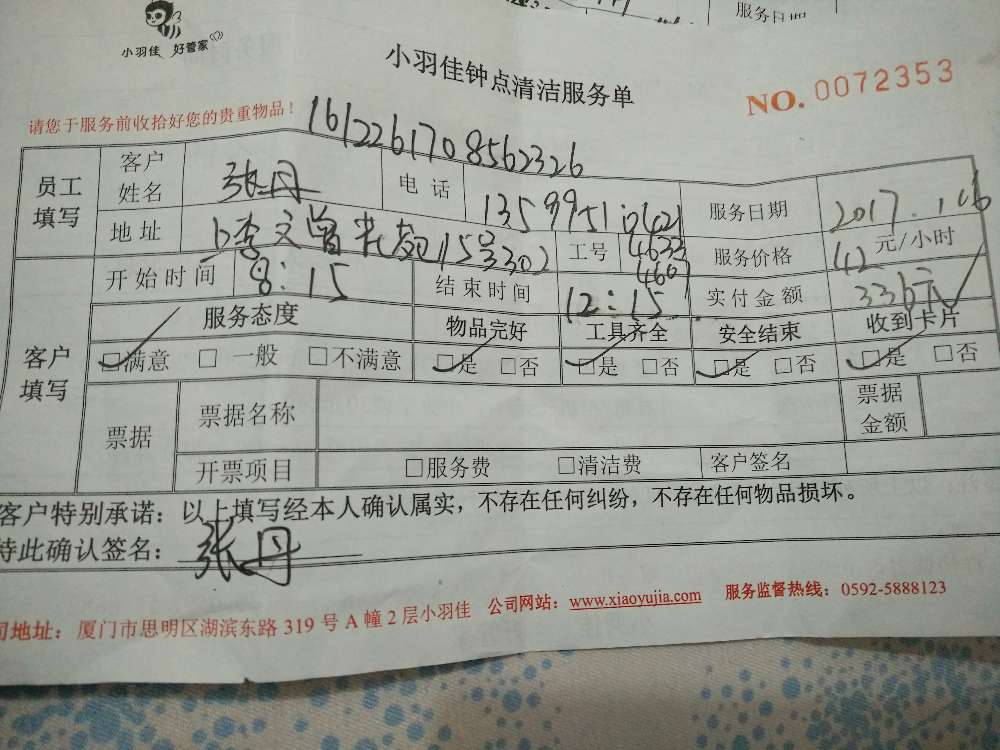 服务日期
小羽佳 好管家
小羽佳钟点清洁服务单
NO. 0072353
请您于服务前收拾好您的贵重物品！
1612261708562326
员工填写 客户姓名 张丹 电话 服务日期
地址 115号3302 工号 4633 4607 服务价格 42 元/小时
开始时间 8:15 结束时间 12:15 实付金额 336元
客户填写 服务态度 物品完好 工具齐全 安全结束 收到卡片
☑满意 □ 一般 □不满意 ☑是 □否 ☑是 □否 ☑是 □否 ☑是 □否
票据 票据名称 票据金额
开票项目 □服务费 □清洁费 客户签名
客户特别承诺：以上填写经本人确认属实，不存在任何纠纷，不存在任何物品损坏。
特此确认签名：张丹
司地址：厦门市思明区湖滨东路 319 号 A 幢 2 层小羽佳 公司网站：www.xiaoyujia.com 服务监督热线：0592-5888123